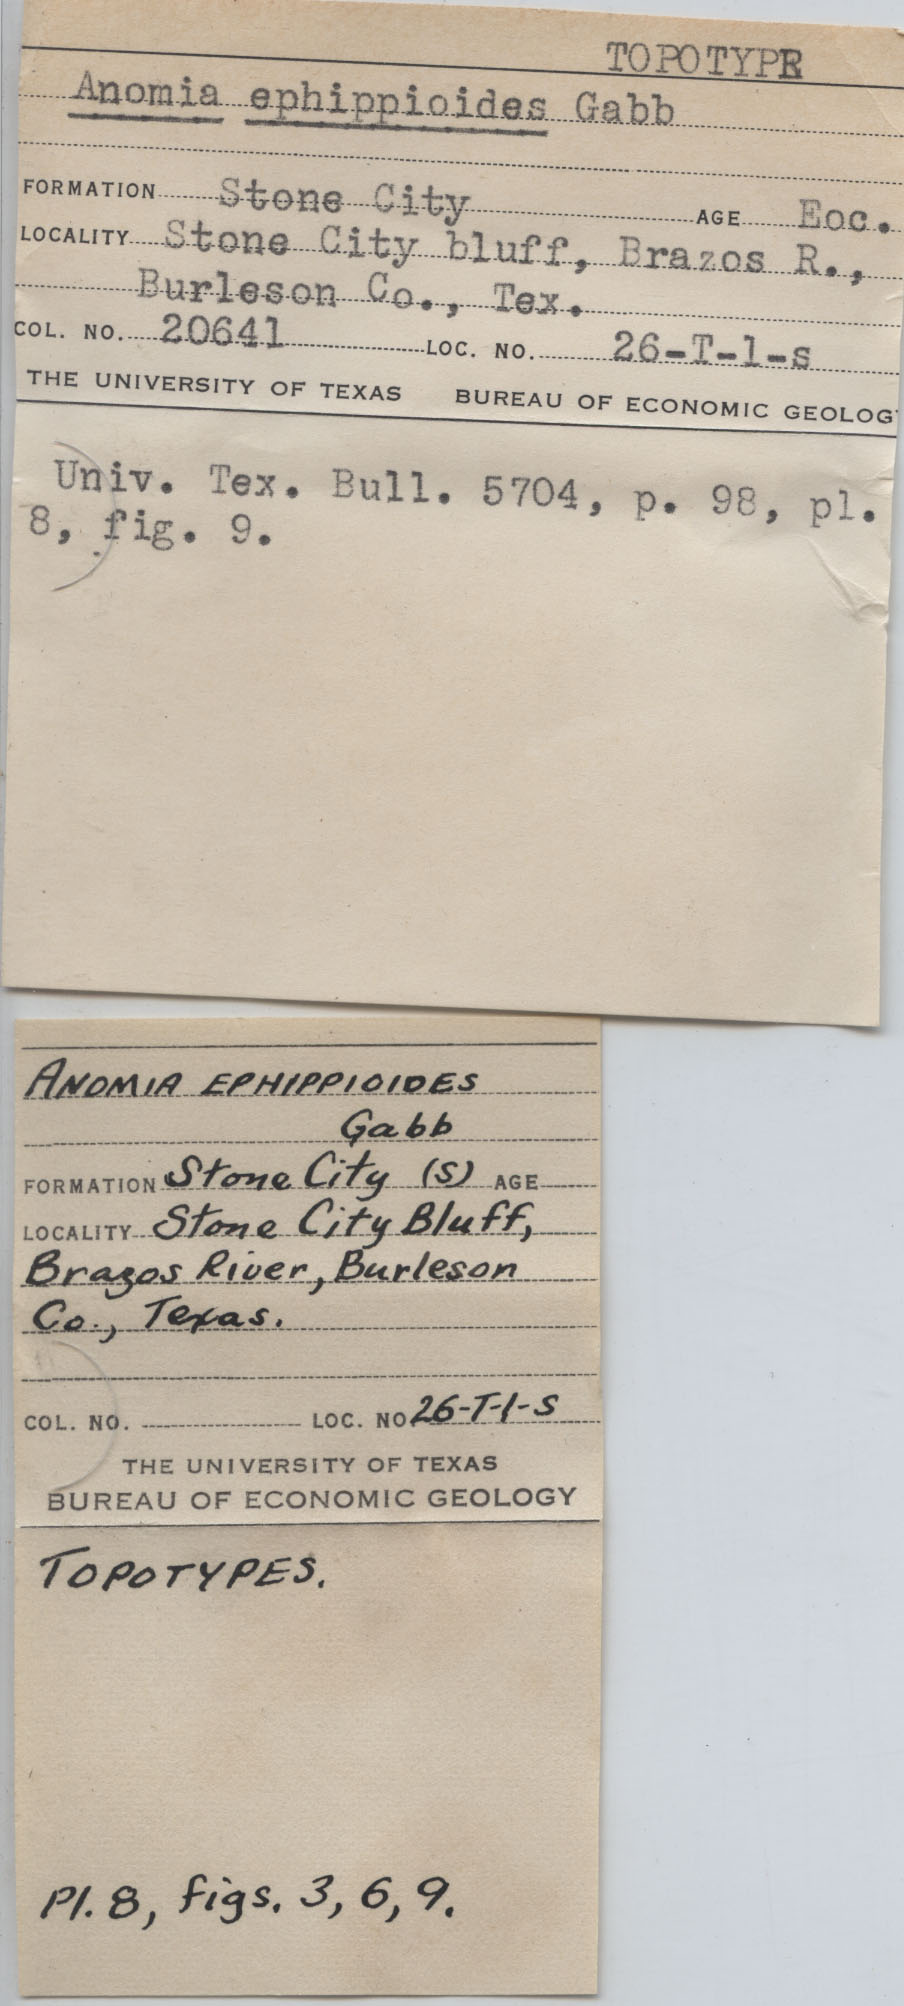 TOPOTYPE
Anomia ephippioides Gabb
FORMATION Stone City AGE Eoc.
LOCALITY Stone City bluff, Brazos R.,
Burleson Co., Tex.
COL. NO. 20641 LOC. NO. 26-T-1-s
THE UNIVERSITY OF TEXAS BUREAU OF ECONOMIC GEOLOG
Univ. Tex. Bull. 5704, p. 98, pl.
8, fig. 9.
ANOMIA EPHIPPIOIDES
Gabb
FORMATION Stone City (S) AGE
LOCALITY Stone City Bluff,
Brazos River, Burleson
Co., Texas.
COL. NO. LOC. NO 26-T-1-S
THE UNIVERSITY OF TEXAS
BUREAU OF ECONOMIC GEOLOGY
TOPOTYPES.
Pl. 8, figs. 3, 6, 9.